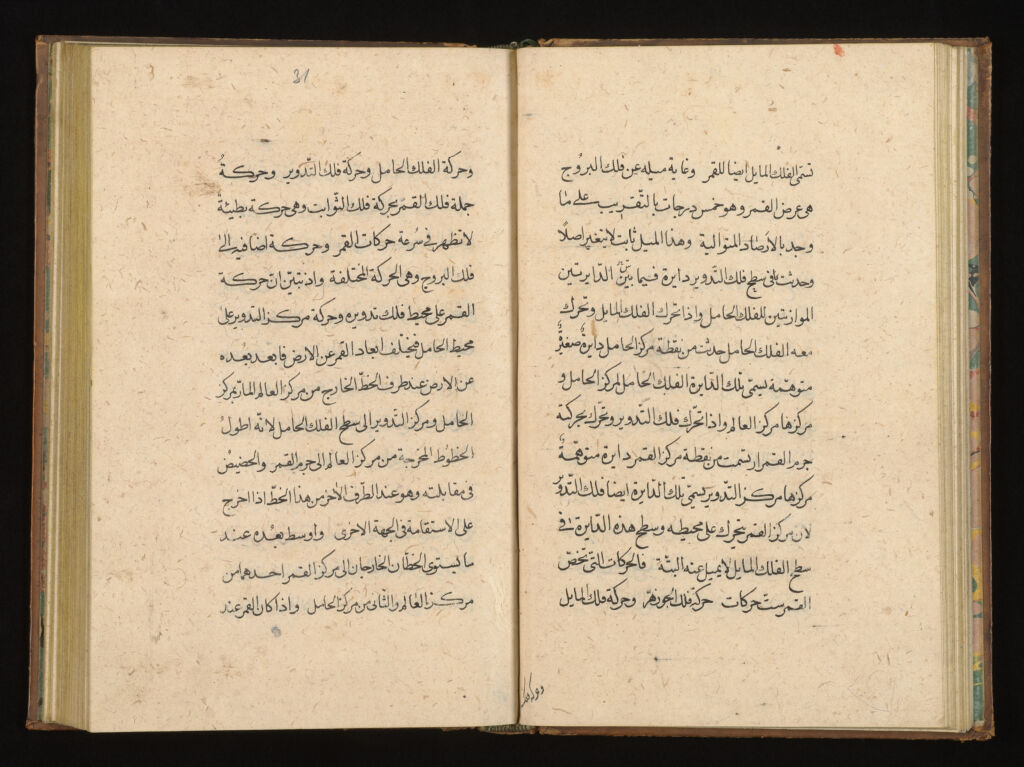 تسمى الفلك المايل ايضا للقمر وغاية ميله عن فلك البروج
هى عرض القمر وهو خمس درجات بالتقريب على ما
وجد بالأرصاد المتوالية وهذا الميل ثابت لا يتغير اصلا
وحدثت فى سطح فلك التدوير دايرة فيما بين الدايرتين
الموازيتين للفلك الحامل واذا تحرك الفلك المايل وتحرك
معه الفلك الحامل حدثت من نقطة مركز الحامل دايرة صغيرة
متوهمة يسمى تلك الدايرة الفلك الحامل لمركز الحامل و
مركزها مركز العالم واذا تحرك فلك التدوير وتحرك بحركته
جرم القمر ارتسمت من نقطة مركز القمر دايرة متوهمة
مركزها مركز التدوير يسمى تلك الدايرة ايضا فلك التدوير
لان مركز القمر يتحرك على محيطه وسطح هذه الدايرة فى
سطح الفلك المايل لا يميل عنه البتة فالحركات التى تخص
القمر ست حركات حركة فلك الجوزهر وحركة فلك المايل
31
وحركة الفلك الحامل وحركة فلك التدوير وحركة
جملة فلك القمر بحركة فلك الثوابت وهى حركة بطيئة
لا تظهر فى سرعة حركات القمر وحركة اضافية الى
فلك البروج وهى الحركة المختلفة واذ تبين ان حركة
القمر على محيط فلك تدويره وحركة مركز التدوير على
محيط الحامل فيختلف ابعاد القمر عن الارض فابعد بعده
عن الارض عند طرف الخط الخارج من مركز العالم المار بمركز
الحامل ومركز التدوير الى سطح الفلك الحامل لانه اطول
الخطوط المخرجة من مركز العالم الى جرم القمر والحضيض
فى مقابلته وهو عند الطرف الآخر من هذا الخط اذا اخرج
على الاستقامة فى الجهة الاخرى واوسط بعده عند
ما يستوى الخطان الخارجان الى مركز القمر احدهما من
مركز العالم والثانى من مركز الحامل واذا كان القمر عند